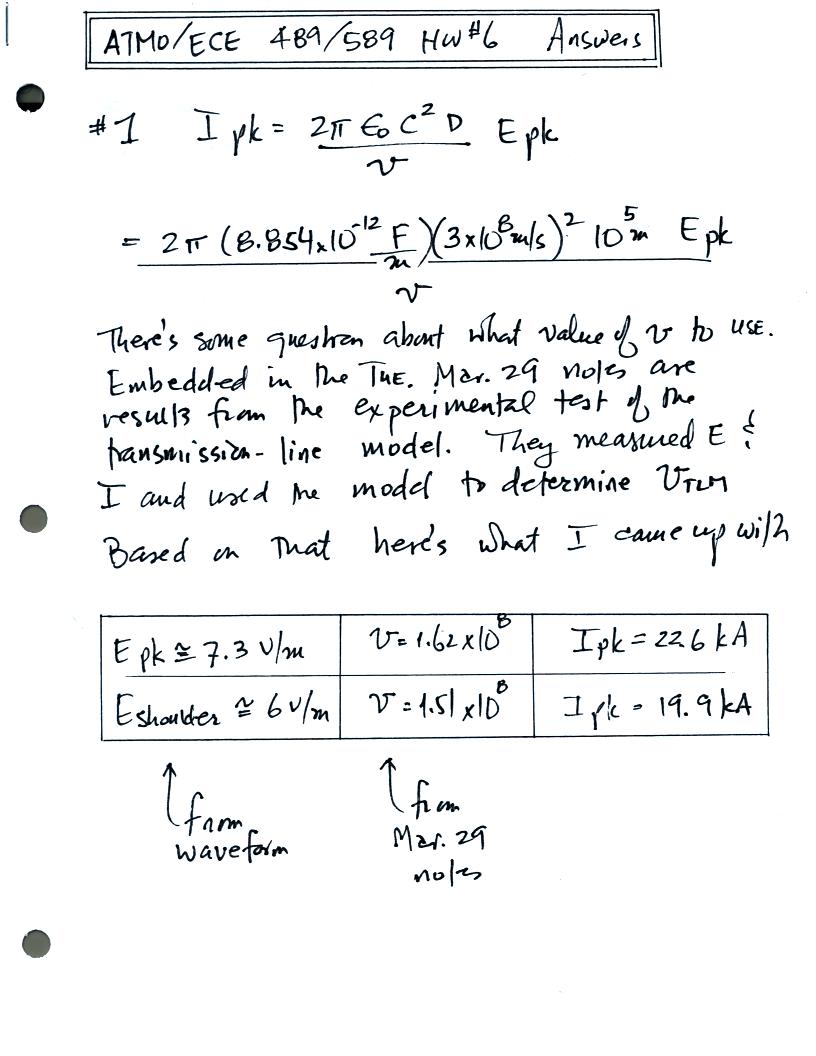 ATMO/ECE 489/589 HW #6 Answers
#1 I pk = 2π ϵ₀ C² D / v E pk
= 2π (8.854x10⁻¹² F/m)(3x10⁸ m/s)² 10⁵ m / v E pk
There's some question about what value of v to use.
Embedded in the Tue. Mar. 29 notes are
results from the experimental test of the
transmission-line model. They measured E &
I and used the model to determine v TLM
Based on that here's what I came up with
E pk ≅ 7.3 V/m v = 1.62 x10⁸ I pk = 22.6 kA
E shoulder ≅ 6 V/m v = 1.51 x10⁸ I pk = 19.9 kA
from
waveform
from
Mar. 29
notes